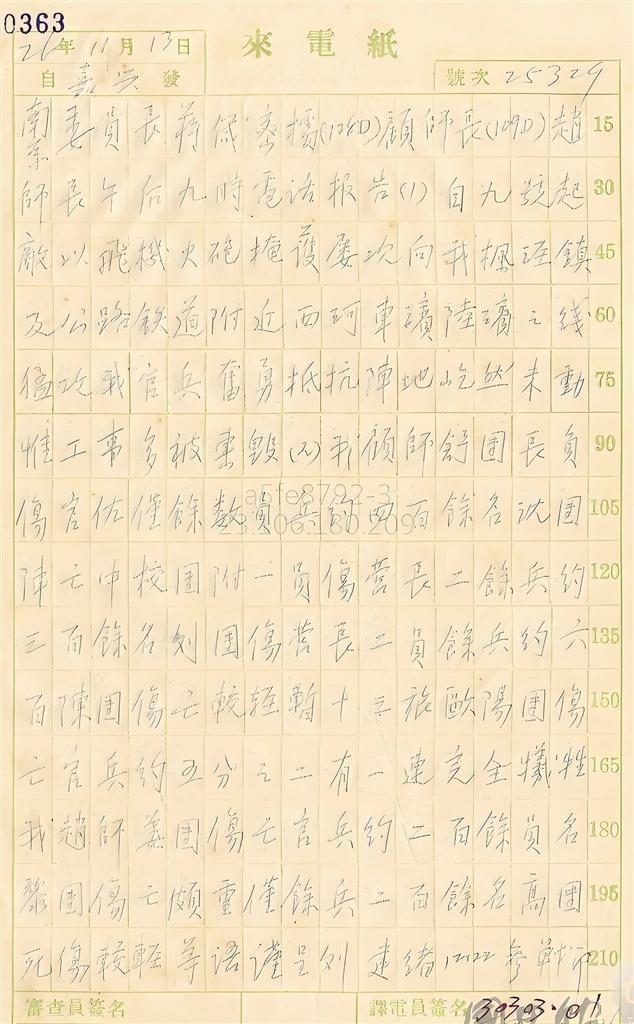 0363
26年11月13日
來電紙
自嘉興發
號次 25329
南京委員長蔣儝密據(128D)顧師長(109D)趙 15
師長午后九時電話报告(1)自九號起 30
敵以飛機火砲掩護屡次向我楓泾鎮 45
及公路鉄道附近西珂車 陸 之线 60
猛攻我官兵奮勇抵抗陣地屹然未動 75
惟工事多被 毀(2)我顧師舒團長負 90
傷官佐僅餘数員兵約四百餘名沈團 105
陣亡中校團附一員傷营長二餘兵约 120
三百餘名刘團傷营長二員餘兵约六 135
百陳團傷亡較轻暫十三旅歐陽團傷 150
亡官兵约五分之二有一連完全犧牲 165
我趙師龔團傷亡官兵约二百餘員名 180
黎團傷亡頗重僅餘兵二百餘名高團 195
死傷較輕等语謹呈刘建绪12122参戰印 210
審查員簽名
譯電員簽名
30303.01
a5fe8792-3